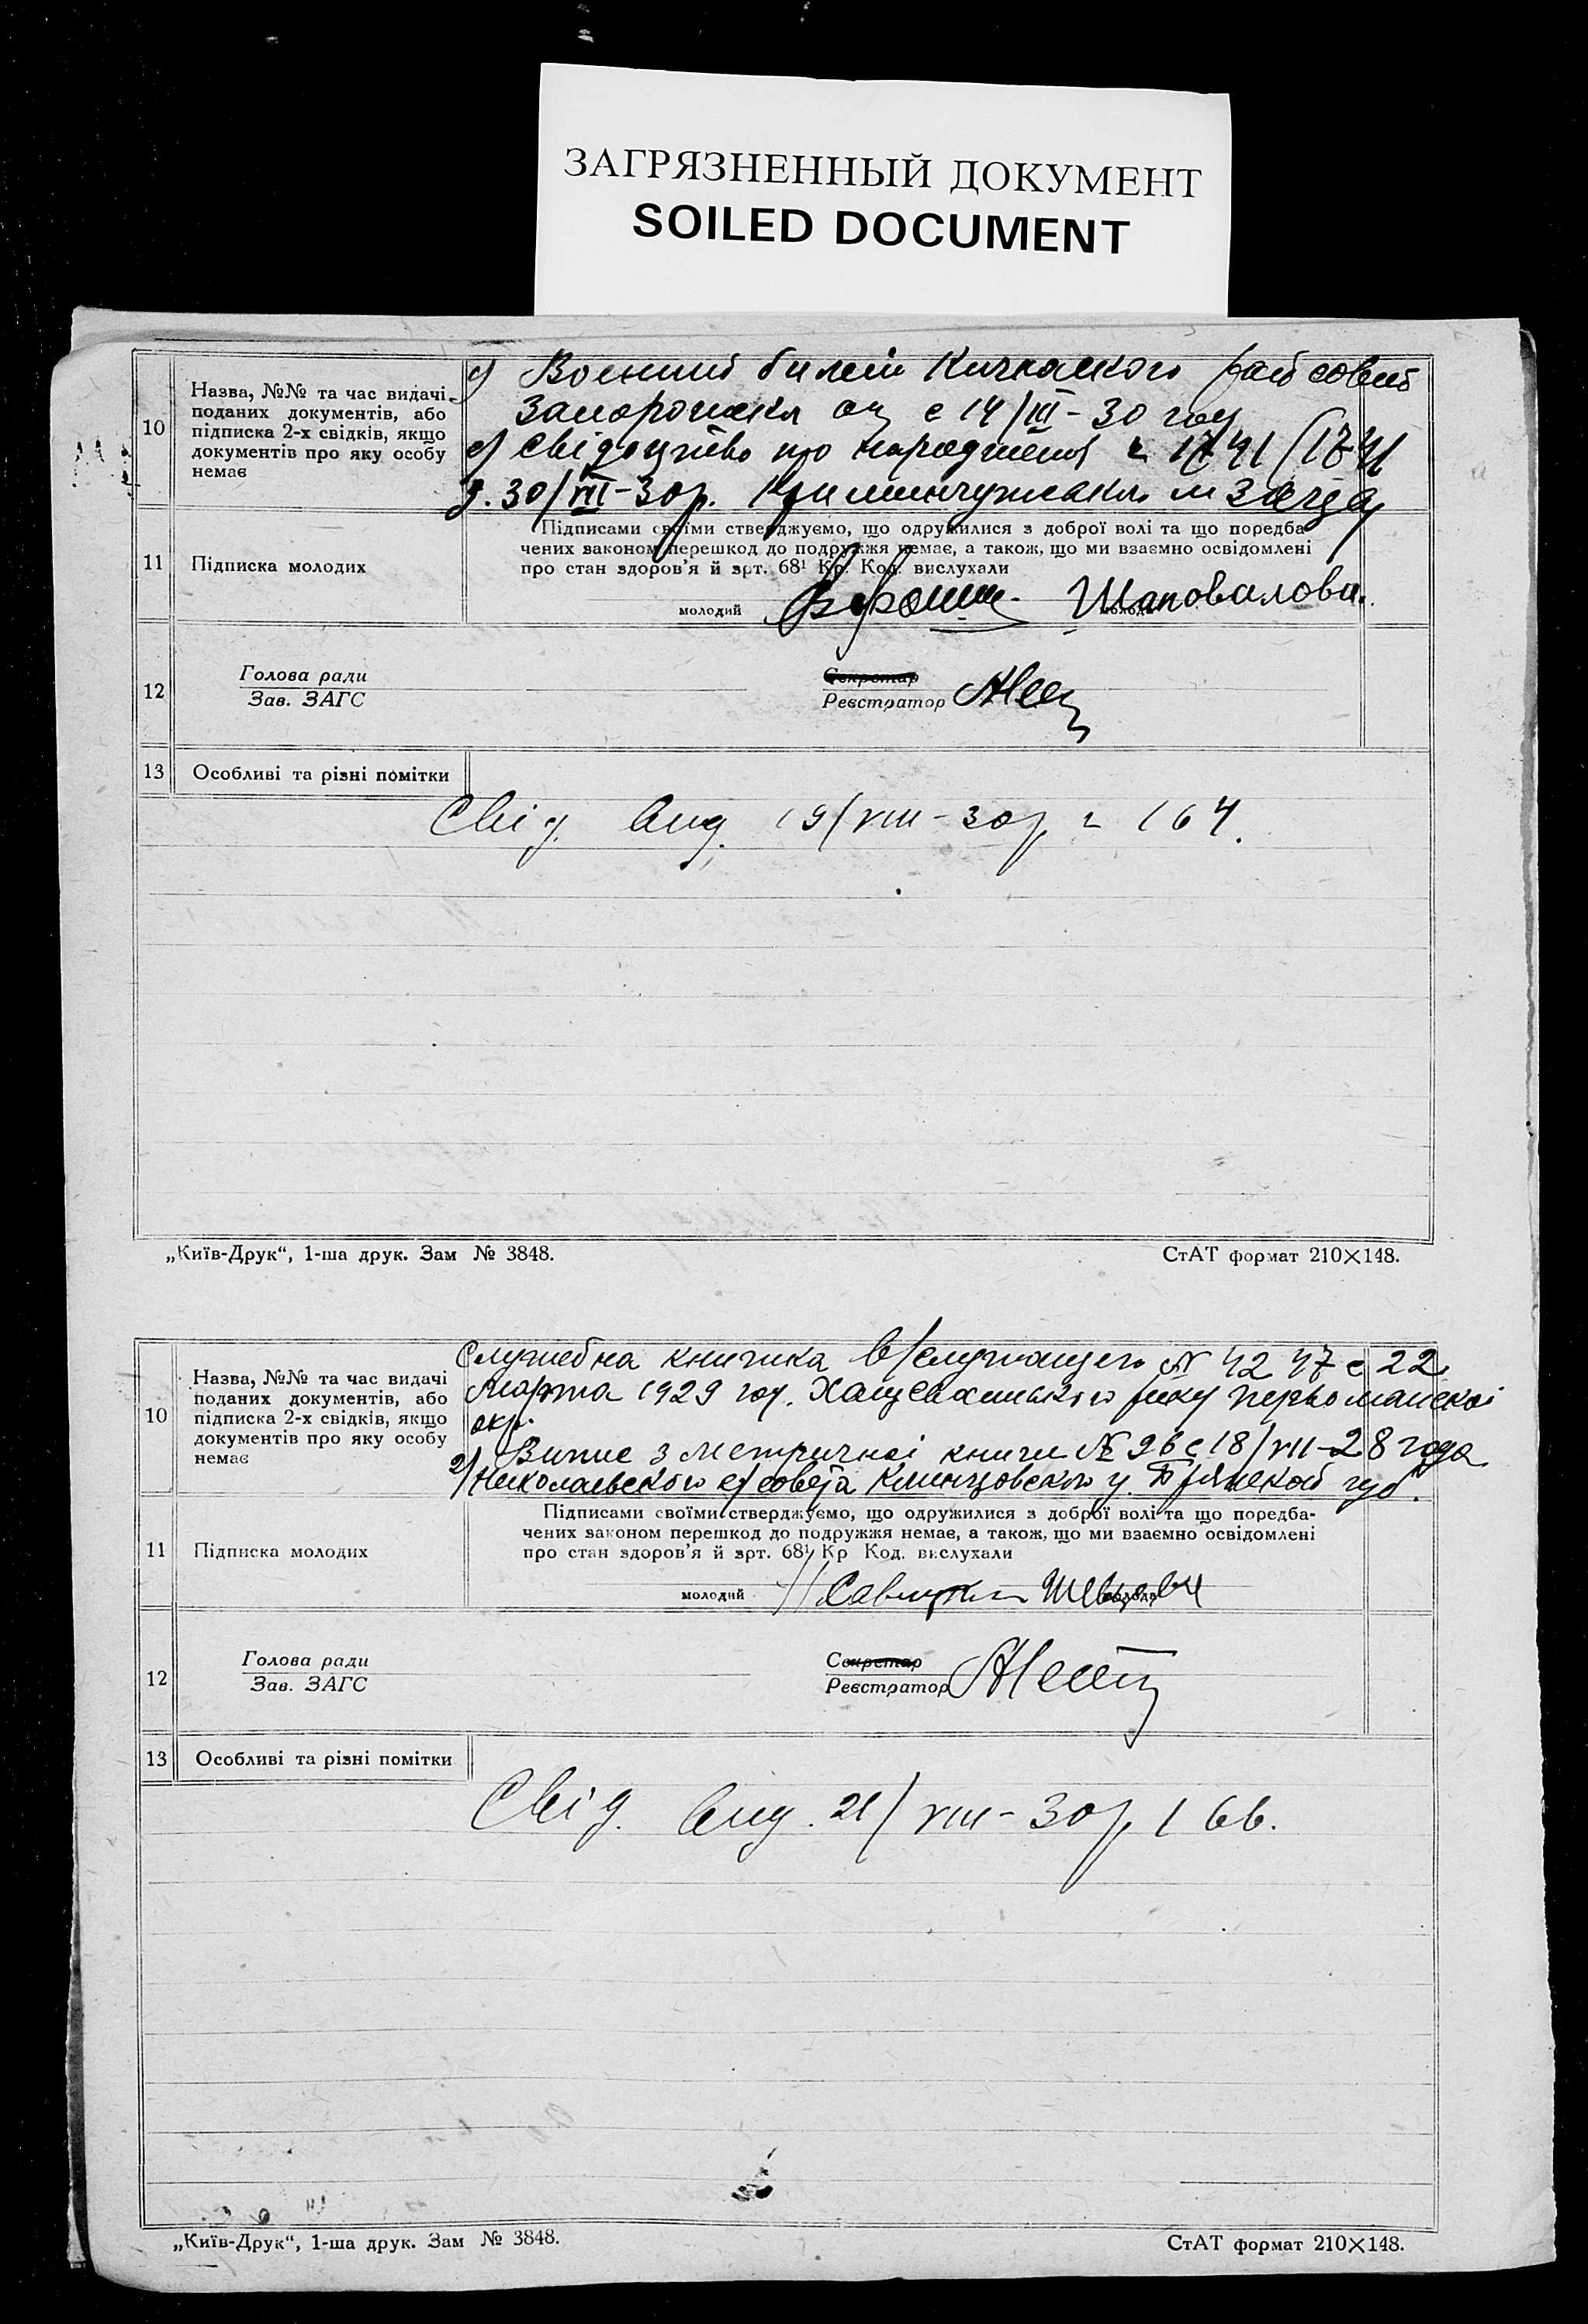 ЗАГРЯЗНЕННЫЙ ДОКУМЕНТ
SOILED DOCUMENT
10
Назва, №№ та час видачі
поданих документів, або
підписка 2-х свідків, якщо
документів про яку особу
немає
Военний билет Кичкаского
Запорожскл с 14/III-30 году
свідоцтво про народження 1741/1741
30/VII-30р.
11
Підписка молодих
Підписами своїми стверджуємо, що одружилися з доброї волі та що поредба
чених законом перешкод до подружжя немає, а також, що ми взаємно освідомлені
про стан здоров'я й зрт. 68¹ Кр. Код. вислухали
молодий Шаповалова.
12
Голова ради
Зав. ЗАГС
Секретар
Реєстратор
13
Особливі та різні помітки
Свід. вид. 19/VIII-30р. 164.
„Київ-Друк“, 1-ша друк. Зам № 3848.
СтАТ формат 210×148.
10
Назва, №№ та час видачі
поданих документів, або
підписка 2-х свідків, якщо
документів про яку особу
немає
Служебна книжка в/служащего № 4247 с 22
Марта 1929 год. Хащеватського рику Первомайскої
окр.
2) Випис з метричної книги № 26 с 18/VII-28 года
Николаевского с/совета Клинцовского у. Брянской губ.
11
Підписка молодих
Підписами своїми стверджуємо, що одружилися з доброї волі та що поредба-
чених законом перешкод до подружжя немає, а також, що ми взаємно освідомлені
про стан здоров'я й зрт. 68¹ Кр Код. вислухали
молодий
12
Голова ради
Зав. ЗАГС
Секретар
Реєстратор
13
Особливі та різні помітки
Свід. вид. 21/VIII-30р. 166.
„Київ-Друк“, 1-ша друк. Зам № 3848.
СтАТ формат 210×148.